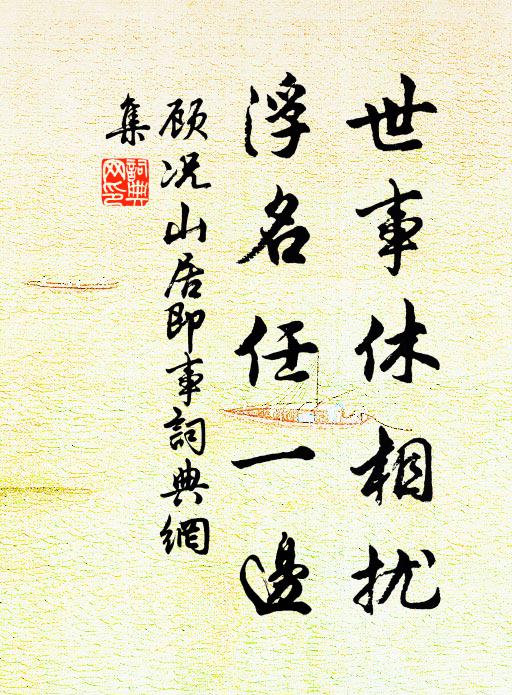 世事休相扰
浮名任一邊
顾况山居即事詞典網
集
詞典
网印